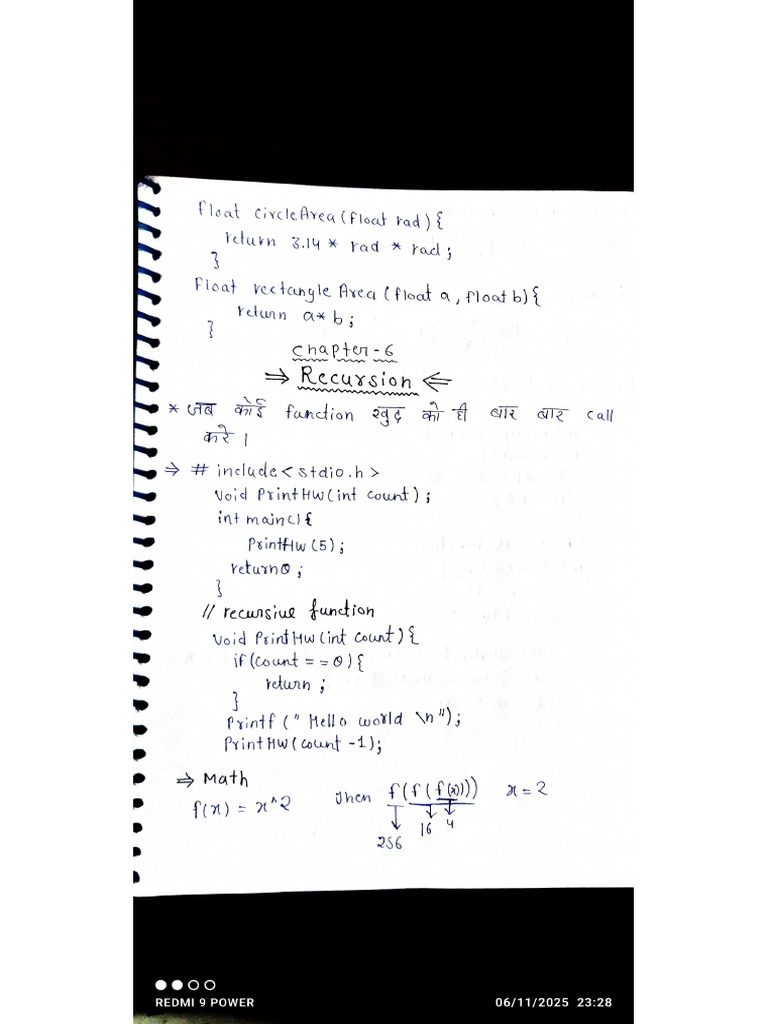 float circleArea(float rad){
return 3.14 * rad * rad;
}
Float rectangle Area (float a, float b){
return a*b;
}
Chapter-6
⇒ Recursion ⇐
* जब कोई function खुद को ही बार बार call
करे ।
⇒ # include < stdio.h >
void PrintHW(int count);
int main(){
PrintHW (5);
return 0;
}
// recursive function
void PrintHW(int count){
if(count == 0){
return ;
}
Printf (" Hello world \n");
PrintHW(count -1);
⇒ Math
f(x) = x^2 when f(f(f(x))) x = 2
16 4
256
REDMI 9 POWER 06/11/2025 23:28